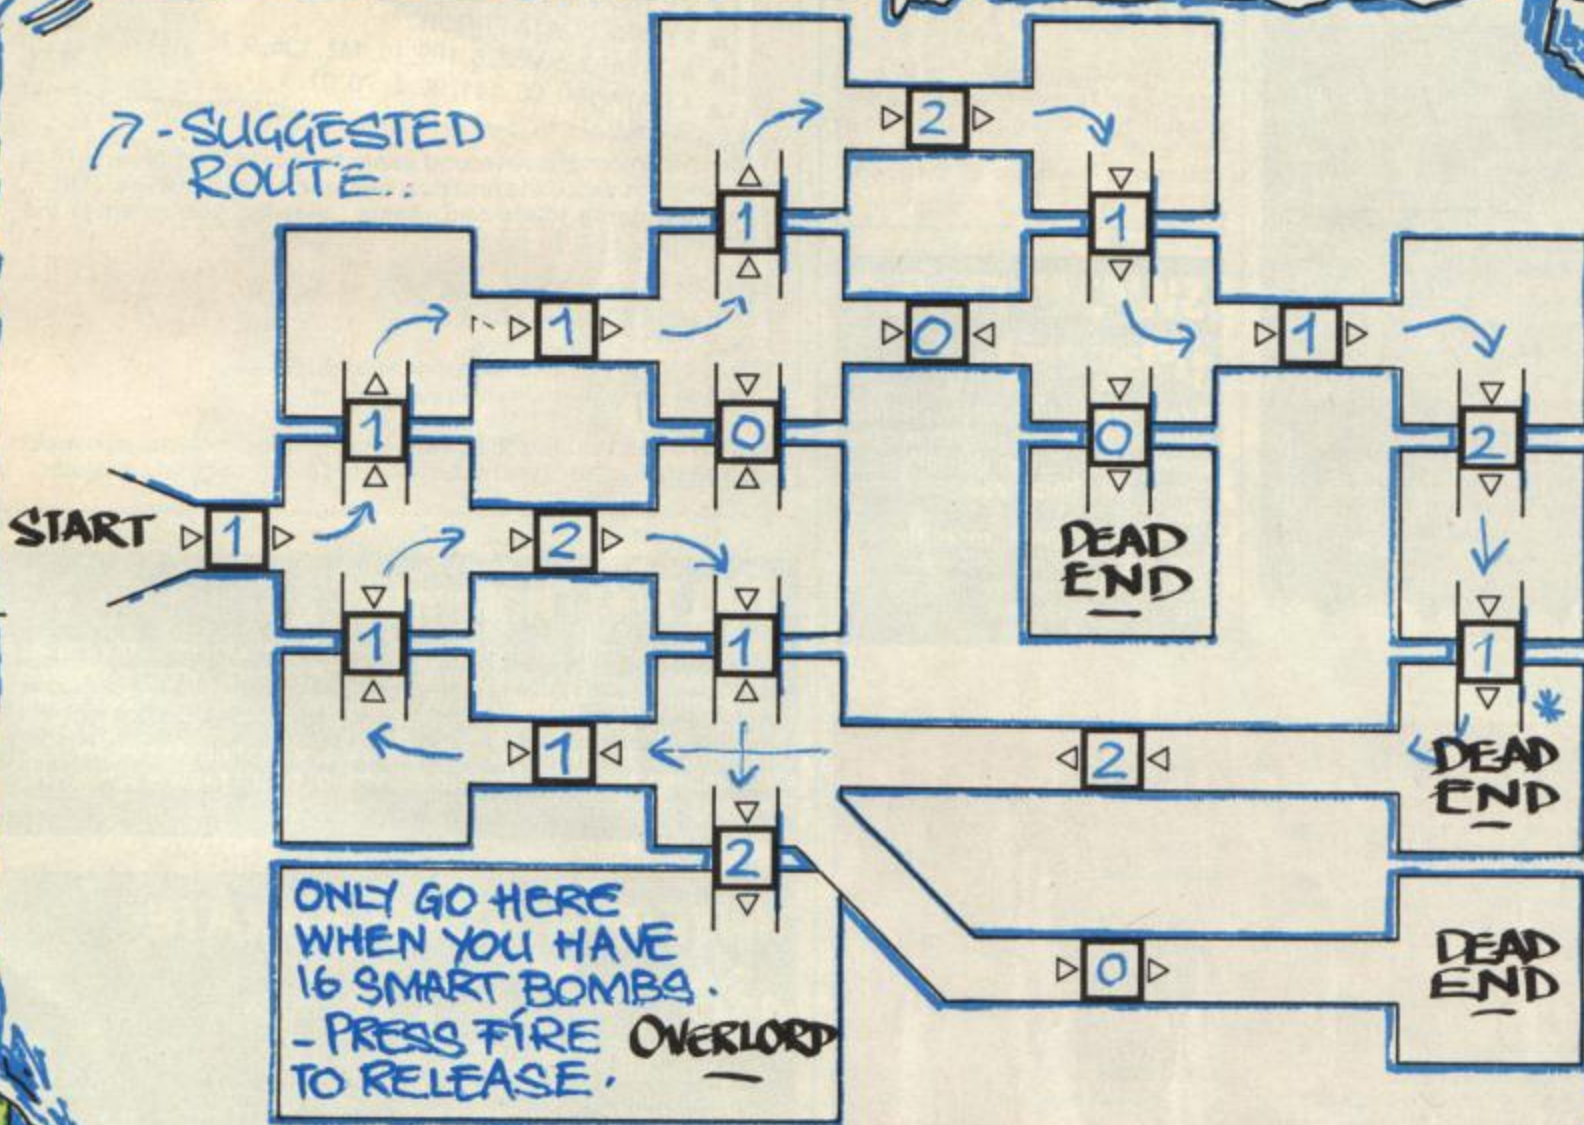 - SUGGESTED
ROUTE..
2
1
1
1
0
1
1
0
0
2
START
1
2
DEAD
END
1
1
1
*
1
2
DEAD
END
2
ONLY GO HERE
WHEN YOU HAVE
16 SMART BOMBS.
- PRESS FIRE
TO RELEASE.
OVERLORD
0
DEAD
END